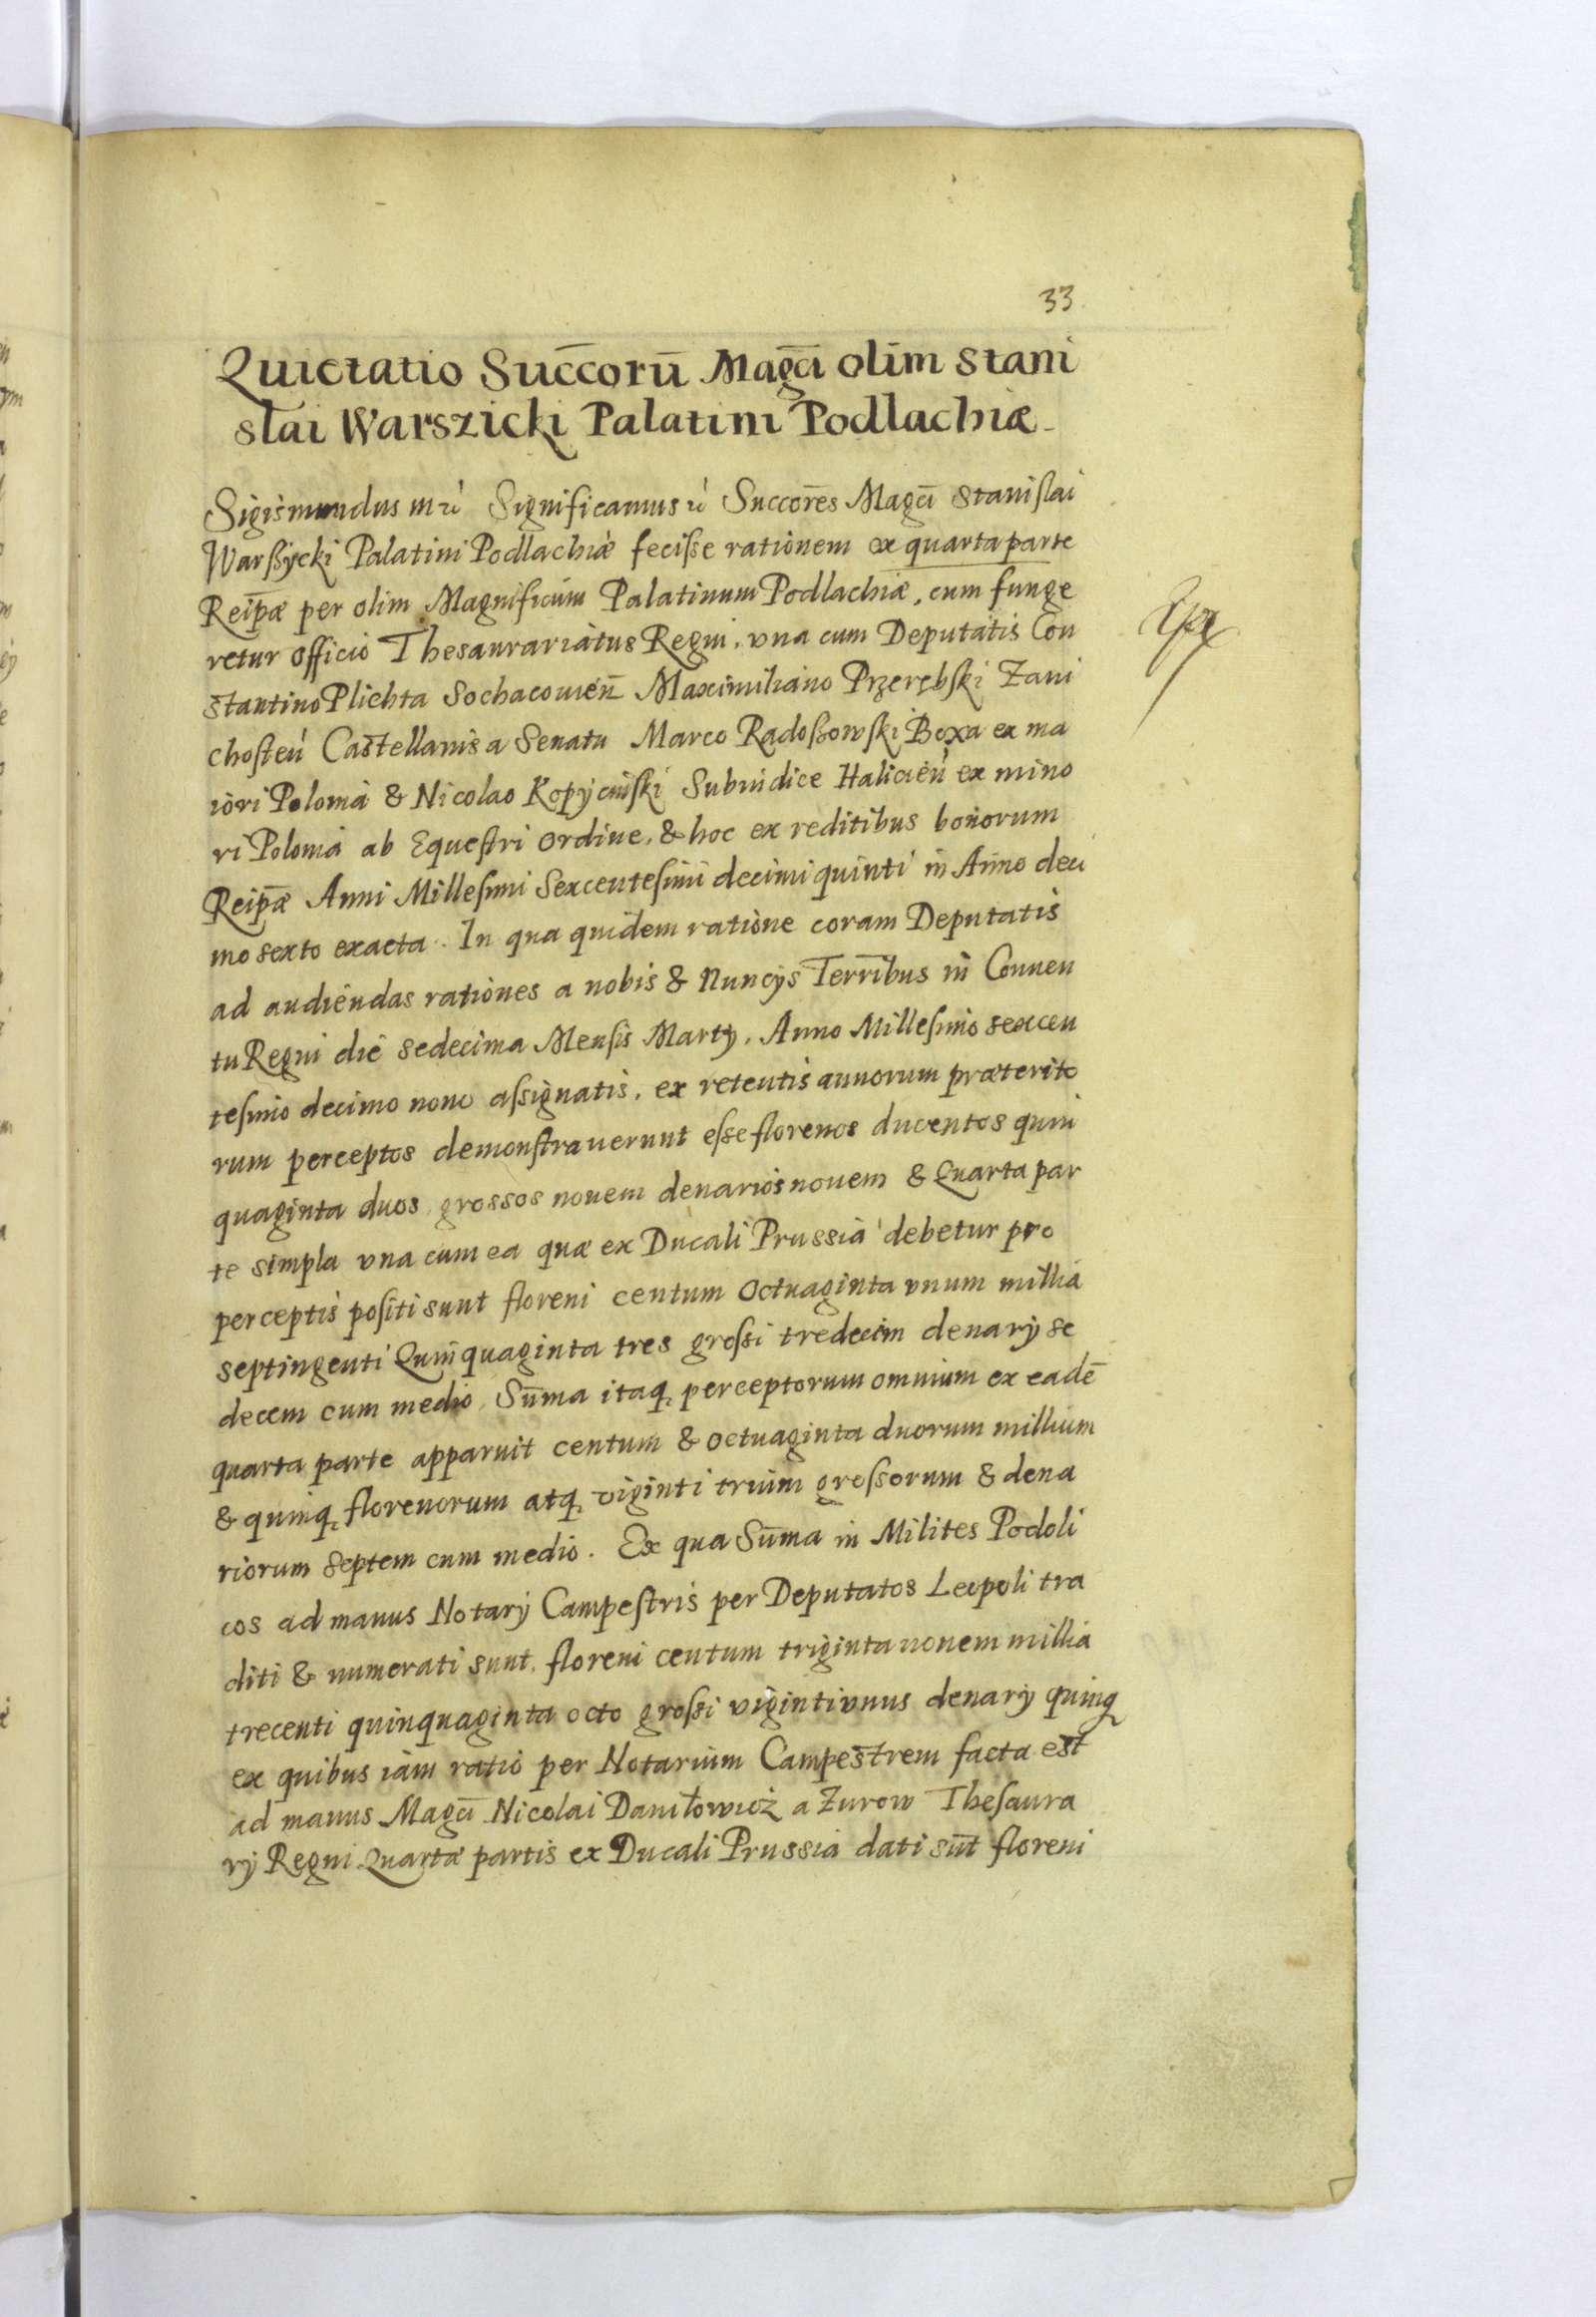 33
Quietatio Succ̄orū Magc̄i olim Stani
slai Warszicki Palatini Podlachiæ
Sigismundus III Significamus Succor̄es Magc̄i Stanislai
Warßycki Palatini Podlachiæ fecisse rationem ex quarta parte
Reip̄æ per olim Magnificum Palatinum Podlachiæ, cum funge
retur officio Thesaurariatus Regni, vna cum Deputatis Con
stantino Plichta Sochacouień Maximiliano Przerębski Zaui
chosteń Castellanis a Senatu Marco Radoßowski Boxa ex ma
iori Polonia & Nicolao Kopyciński Subiudice Halicień ex mino
ri Polonia ab Equestri ordine, & hoc ex reditibus bonorum
Reip̄æ Anni Millesimi Sexcentesimi decimi quinti in Anno deci
mo sexto exacta. In qua quidem ratione coram Deputatis
ad audiendas rationes a nobis & Nuncys Terrībus in Conuen
tu Regni die sedecima Mensis Marty, Anno Millesimo sexcen
tesimo decimo nono assignatis, ex retentis annorum præterito
rum perceptos demonstrauerunt esse florenos ducentos quin
quaginta duos grossos nouem denarios nouem & Quarta par
te simpla vna cum ea quæ ex Ducali Prussia debetur pro
perceptis positi sunt floreni centum Octuaginta vnum millia
septingenti Quinquaginta tres grossi tredecim denary se
decem cum medio, Sum̄a itaq perceptorum omnium ex eadē
quarta parte apparuit centum & octuaginta duorum millium
& quinq florenorum atq viginti trium grossorum & dena
riorum septem cum medio. Ex qua Sum̄a in Milites Podoli
cos ad manus Notary Campestris per Deputatos Leopoli tra
diti & numerati sunt, floreni centum triginta nouem millia
trecenti quinquaginta octo grossi viginti vnus denary quinq
ex quibus iam ratio per Notarium Campestrem facta est
ad manus Magc̄i Nicolai Daniłowicz a Zurow Thesaura
ry Regni Quartæ partis ex Ducali Prussia dati sūt floreni